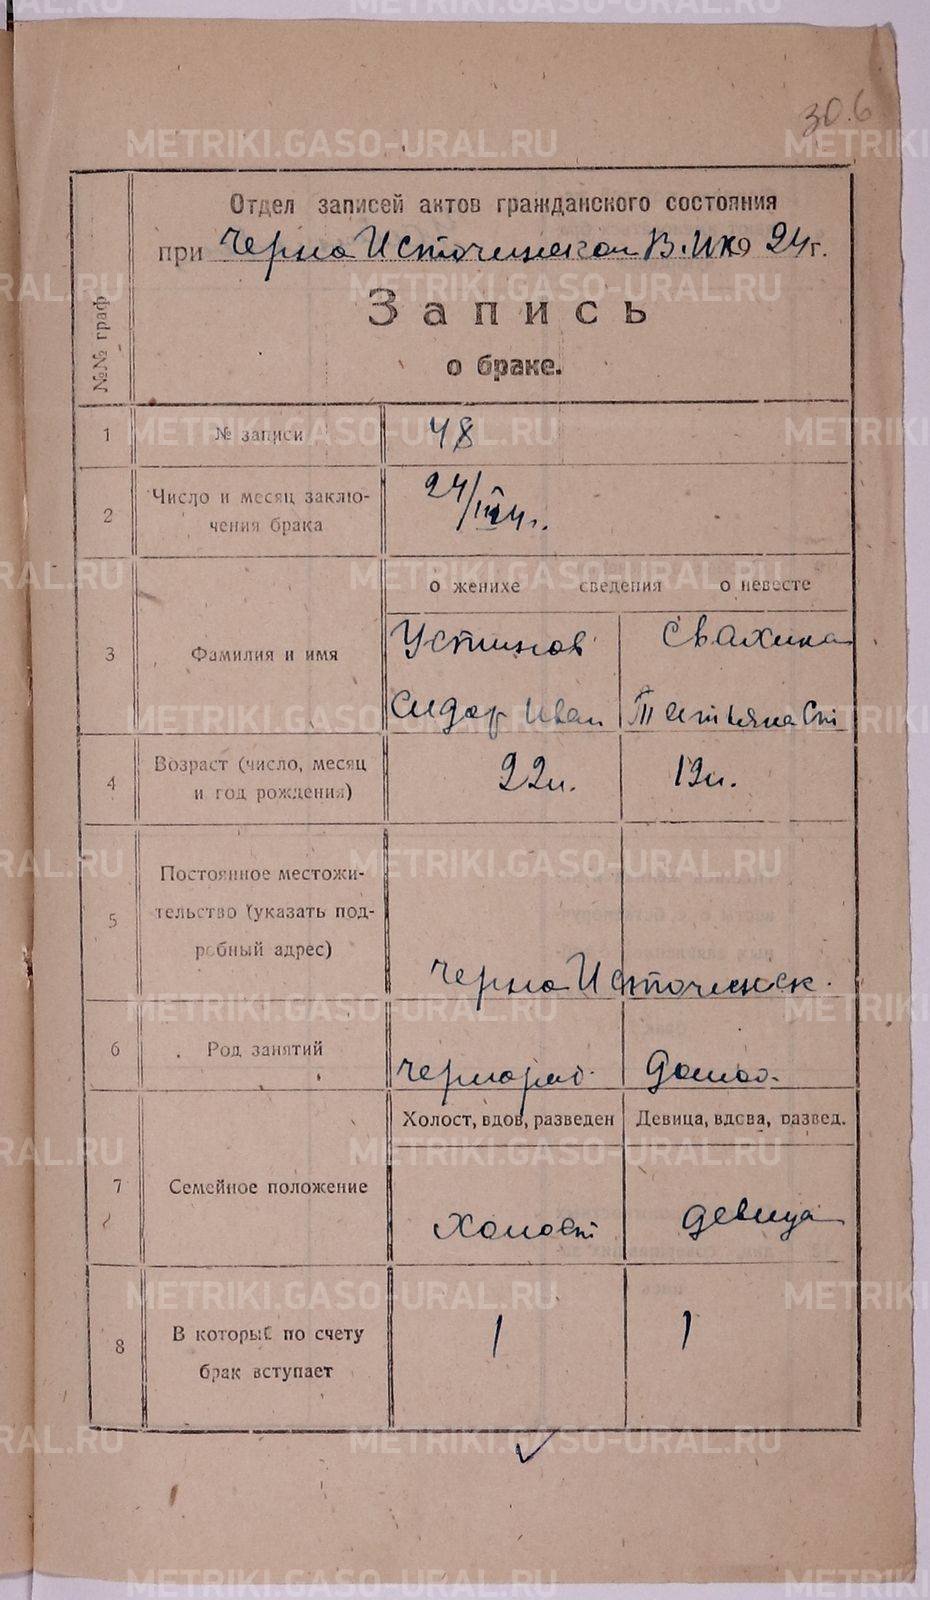 30.6
Отдел записей актов гражданского состояния
при Черно Источинском В.Ик 24 г.
Запись
о браке.
№№ граф
1 № записи 48
2 Число и месяц заключения брака 24/III 24 г.
о женихе сведения о невесте
3 Фамилия и имя
Устинов Свахина
Сидор Иван Татьяна Ст
4 Возраст (число, месяц
и год рождения) 22 л. 19 л.
5 Постоянное местожи-
тельство (указать под-
робный адрес)
Черно Источинск.
6 Род занятий
Чернораб. Домаш.
Холост, вдов, разведен Девица, вдова, развед.
7 Семейное положение
Холост девица
8 В который по счету
брак вступает 1 1
METRIKI.GASO-URAL.RU